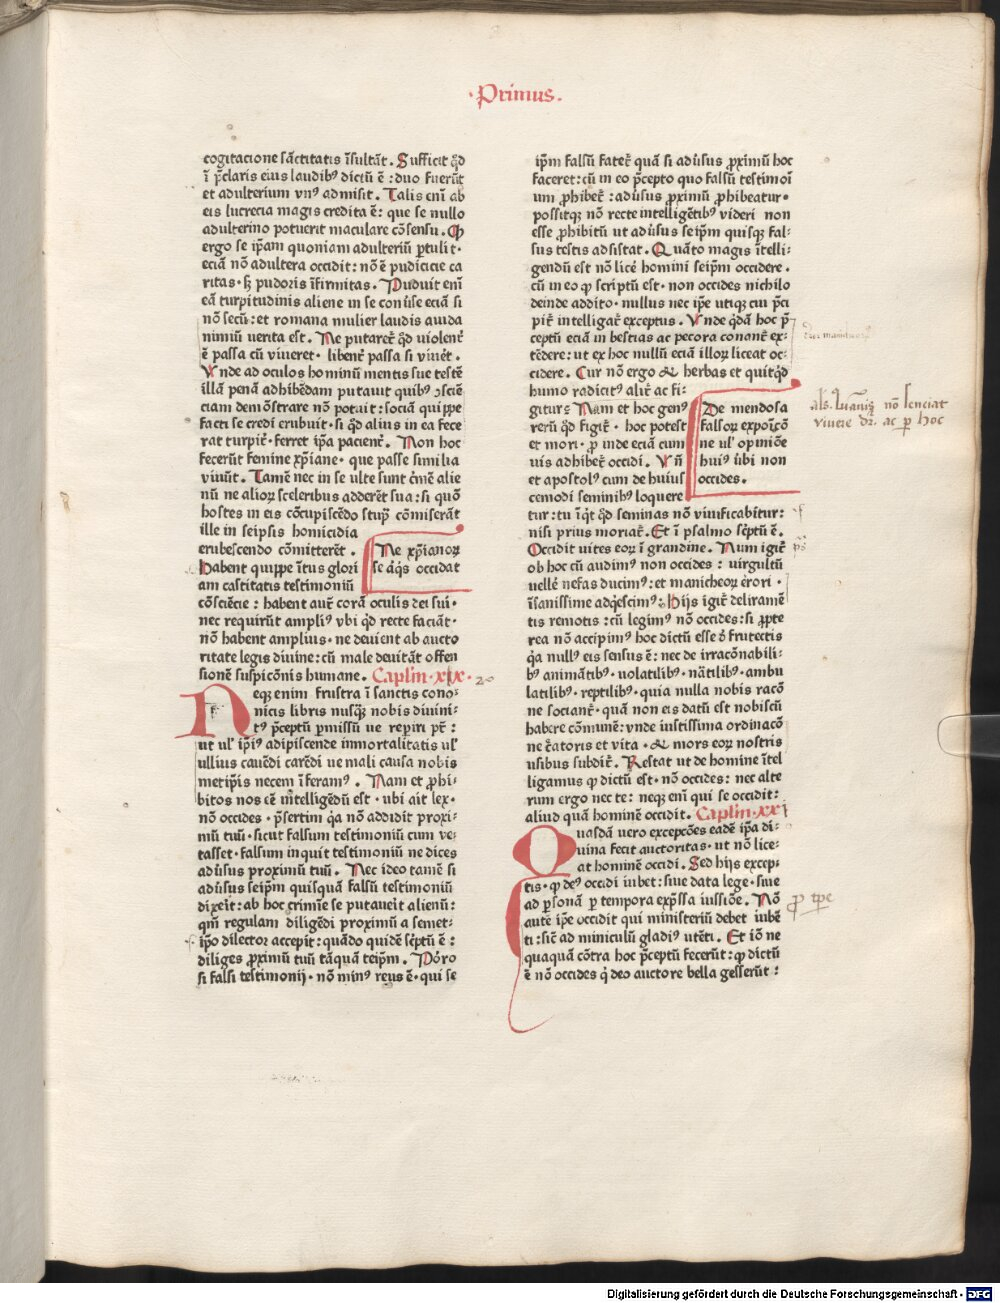 ·Primus.
cogitacione sāctitatis īsultāt. Sufficit qd̄
ī p̄claris eius laudibꝰ dictū ē : duo fuerūt
et adulterium vnꝰ admisit. Talis enī ab
eis lucrecia magis credita ē: que se nullo
adulterino potuerit maculare cōsensu. Ꝙ
ergo se ip̄am quoniam adulteriū ꝑtulit·
eciā nō adultera occidit: nō ē pudicicie ca
ritas· sꝫ pudoris īfirmitas. Puduit enī
eā turpitudinis aliene in se cōm̄isse eciā si
nō secū: et romana mulier laudis auida
nimiū verita est. Ne putaret̄ qd̄ uiolent̄
ē passa cū viueret· libent̄ passa si viu̇et̄.
Vnde ad oculos hominū mentis sue testē
illā penā adhibēdam putauit quibꝰ ↄsciē
ciam demōstrare nō potuit: sociā quippe
facti se credi erubuit· si qd̄ alius in ea fece
rat turpit̄· ferret ip̄a pacient̄. Non hoc
fecerūt femine xp̄iane· que passe similia
viuūt. Tamē nec in se ulte sunt c̄mē alie
nū ne alioꝝ sceleribus adderēt sua: si quō
hostes in eis cōcupiscēdo stup̄ cōmiserāt
ille in seipsis homicidia
erubescendo cōmitterēt.
Ne xp̄ianoꝝ
se aq̇s occidat
Habent quippe ītus glori
am castitatis testimoniū
cōsciēcie: habent aut̄ corā oculis dei sui·
nec requirūt ampliꝰ vbi qd̄ recte faciāt·
nō habent amplius· ne deuient ab aucto
ritate legis diuine: cū male deuitāt offen
sionē suspicōnis humane. Caplm̄·xix· 20
Neqꝫ enim frustra ī sanctis cono-
nicis libris nusqꝫ nobis diuini-
tꝰ p̄ceptū ꝑmissū ue reperiri pt̄:
ut ul' ip̄iꝰ adipiscende inmortalitatis ul'
ullius cauēdi carēdi ue mali causa nobis
metip̄is necem īferamꝰ. Nam et ꝓhi-
bitos nos eē intelligēdū est· ubi ait lex·
nō occides· p̄sertim qa nō addidit proxi-
mū tuū· sicut falsum testimoniū cum ve-
tasset· falsum inquit testimoniū ne dices
adūsus proximū tuū. Nec ideo tamē si
adūsus seip̄m quisquā falsū testimoniū
dixeit̄: ab hoc crimīe se putaueit alienū:
qm̄ regulam diligēdi proximū a semet-
ip̄o dilector accepit: quādo quidē sc̄ptū ē:
diliges ꝓximū tuū tāquā teip̄m. Poro
si falsi testimonij· nō minꝰ reus ē· qui se
ip̄m falsū fatet̄ quā si adūsus ꝓximū hoc
faceret: cū in eo p̄cepto quo falsū testimoī
um ꝓhibet̄: adūsus ꝓximū ꝓhibeatur·
possitqꝫ nō recte intelligētibꝰ videri non
esse ꝓhibitū ut adūsus seip̄m quisqꝫ fal-
sus testis adsistat. Quāto magis ītelli-
gendū est nō licē homini seip̄m occidere.
cū in eo ꝙ scriptū est· non occides nichilo
deinde addito· nullus nec ip̄e utiqꝫ cui p̄ci
pit̄ intelligat̄ exceptus. Vnde qdā hoc p̄
ceptū eciā in bestias ac pecora conant̄ ex-
tēdere: ut ex hoc nullū eciā illoꝝ liceat oc-
cidere. Cur nō ergo & herbas et quitqd̄
humo radicitꝰ alit̄ ac fi-
gitur: Nam et hoc genꝰ
De mendosa
falsoꝝ expoīcō
ne ul' opiniōe
huiꝰ ūbi non
occides.
rerū qd̄ figit̄· hoc potest
et mori· ꝑ inde eciā cum
uis adhibet̄ occidi. Vn̄
et apostolꝰ cum de huius
cemodi seminibꝰ loquere
tur: tu īqt̄ qd̄ seminas nō viuificabitur:
nisi prius moriat̄. Et ī psalmo sc̄ptū ē.
Occidit uites eoꝝ ī grandine. Num igit̄
ob hoc cū audimꝰ non occides: virgultū
uellē nefas ducimꝰ: et manicheoꝝ ērori·
īsanissime adqesc̄imꝰ: Hijs īgit̄ deliramē
tis remotis: cū legimꝰ nō occides: si ꝓpte
rea nō accipimꝰ hoc dictū esse d̄ frutectis
qa nullꝰ eis sensus ē: nec de irracōnabili-
bꝰ animātibꝰ· uolatilibꝰ· nātilibꝰ· ambu
latilibꝰ· reptilibꝰ· quia nulla nobis racō
ne sociant̄· quā non eis datū est nobiscū
habere cōmunē: vnde iustissima ordinacō
ne c̄atoris et vita· & mors eoꝝ nostris
usibus subdit̄. Restat ut de homine ītel
ligamus ꝙ dictū est· nō occides: nec alte
rum ergo nec te: neqꝫ enī qui se occidit:
aliud quā hominē occidit. Caplm̄·xx
Quasdā uero excepcōes eadē ip̄a di-
uina fecit auctoritas· ut nō lice-
at hominē occidi. Sed hijs excep-
tis· ꝙ deꝰ occidi iubet: siue data lege· siue
ad ꝑsonā ꝑ tempora exp̄ssa iussiōe. Nō
autē ip̄e occidit qui ministeriū debet iubē
ti: sic̄ ad miniculū gladiꝰ utēti. Et iō ne
quaquā cōtra hoc p̄ceptū fecerūt: ꝙ dictū
ē nō occides q̇ deo auctore bella gesserūt:
viuere dr̄. ac ꝑ hoc
Digitalisierung gefördert durch die Deutsche Forschungsgemeinschaft - DFG